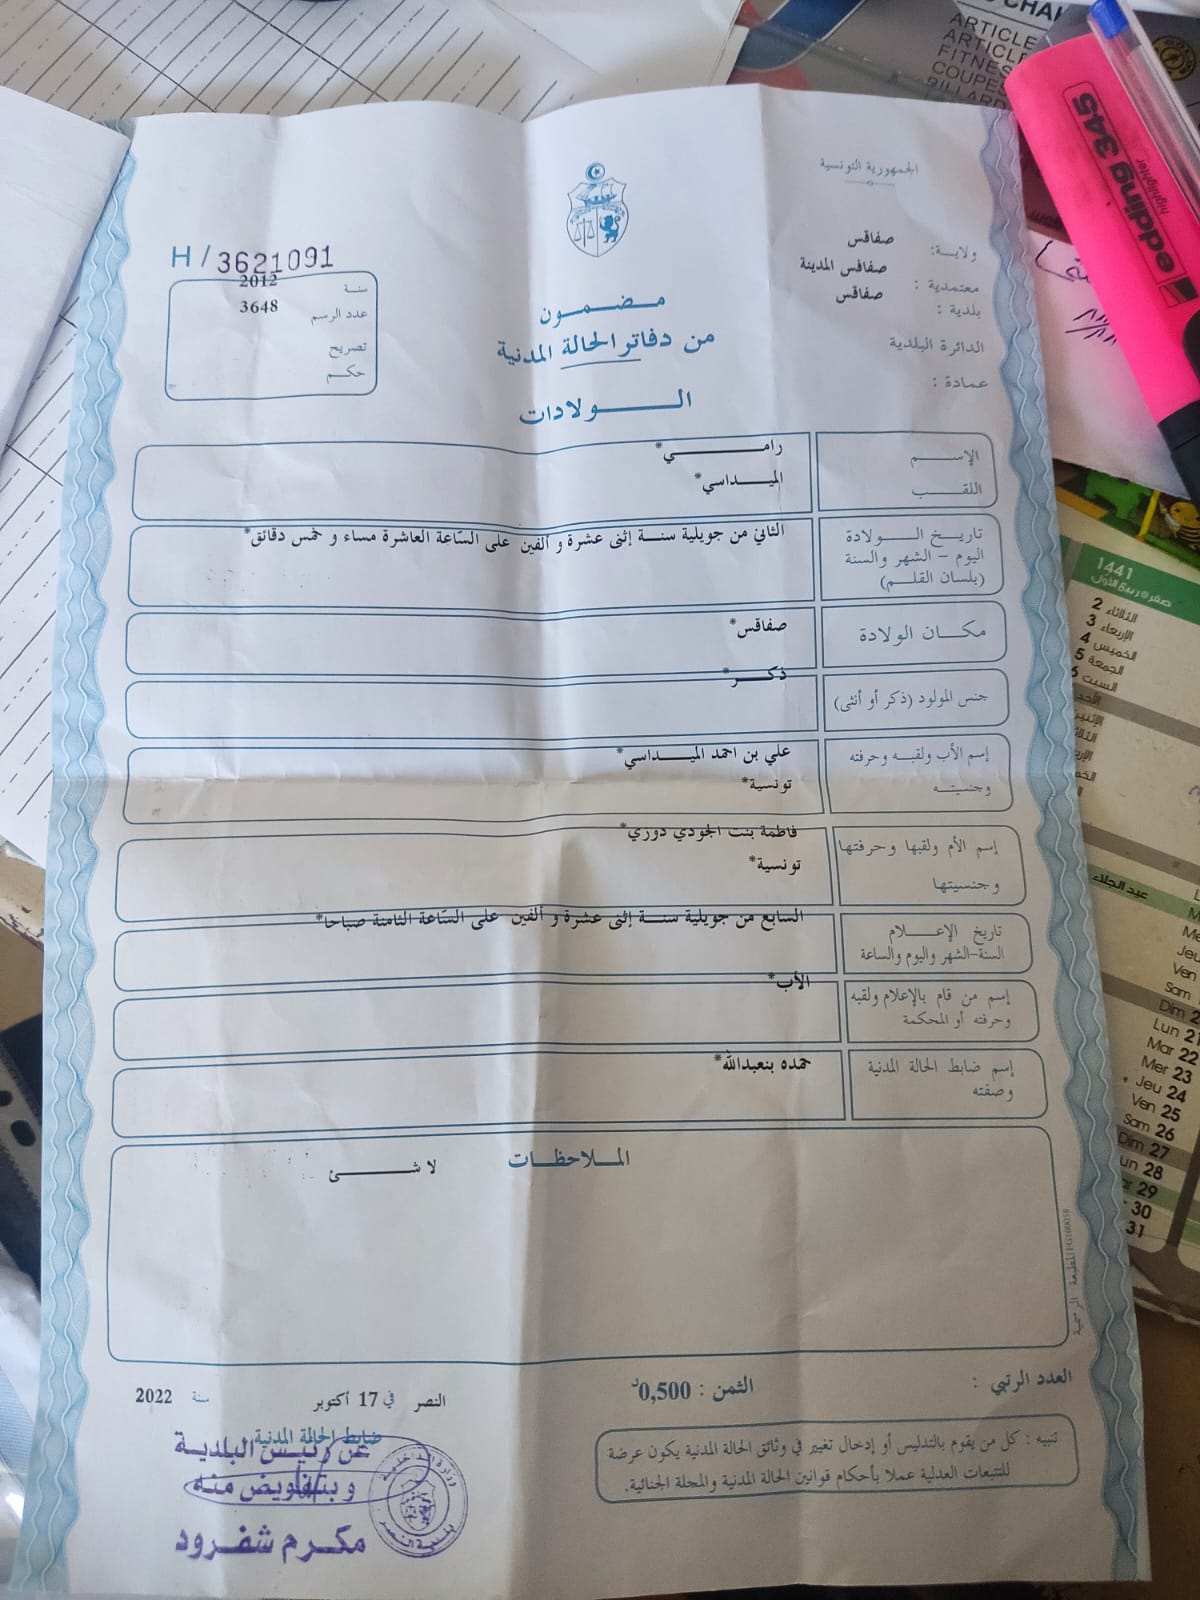 الجمهورية التونسية
ولاية: صفاقس
معتمدية : صفاقس المدينة
بلدية : صفاقس
الدائرة البلدية
عمادة :
H / 3621091
سنة 2012
عدد الرسم 3648
تصريح
حكم
مضمون
من دفاتر الحالة المدنية
الولادات
الإسم رامي*
اللقب الميداسي*
تاريخ الولادة
اليوم - الشهر والسنة
(بلسان القلم)
الثاني من جويلية سنة إثنى عشرة و ألفين على السّاعة العاشرة مساء و خمس دقائق*
مكان الولادة صفاقس*
جنس المولود (ذكر أو أنثى) ذكر*
إسم الأب ولقبه وحرفته علي بن احمد الميداسي*
وجنسيته تونسية*
إسم الأم ولقبها وحرفتها فاطمة بنت الجودي دوزي*
وجنسيتها تونسية*
تاريخ الإعلام
السنة-الشهر واليوم والساعة
السابع من جويلية سنة إثنى عشرة و ألفين على السّاعة الثامنة صباحا*
إسم من قام بالإعلام ولقبه
وحرفته أو المحكمة
الأب*
إسم ضابط الحالة المدنية
وصفته
حمده بنعبدالله*
الملاحظات
لا شئ
العدد الرتبي :
الثمن : 0,500د
النصر في 17 أكتوبر سنة 2022
ضابط الحالة المدنية
عن رئيس البلدية
وبتفويض منه
مكرم شفرود
وزارة الداخلية
بلدية النصر
تنبيه : كل من يقوم بالتدليس أو إدخال تغيير في وثائق الحالة المدنية يكون عرضة
للتتبعات العدلية عملا بأحكام قوانين الحالة المدنية والمجلة الجنائية.
المطبعة الرسمية
ARTICLE
ARTICLE
FITNES
COUPES
BILLARD
edding 345
highlighter
1441
صفر ربيع الأول
الثلاثاء 2
الإربعاء 3
الخميس 4
الجمعة 5
السبت 6
عيد الجلاء
Lun 21
Mar 22
Mer 23
Jeu 24
Ven 25
Sam 26
Dim 27
un 28
ar 29
30
31